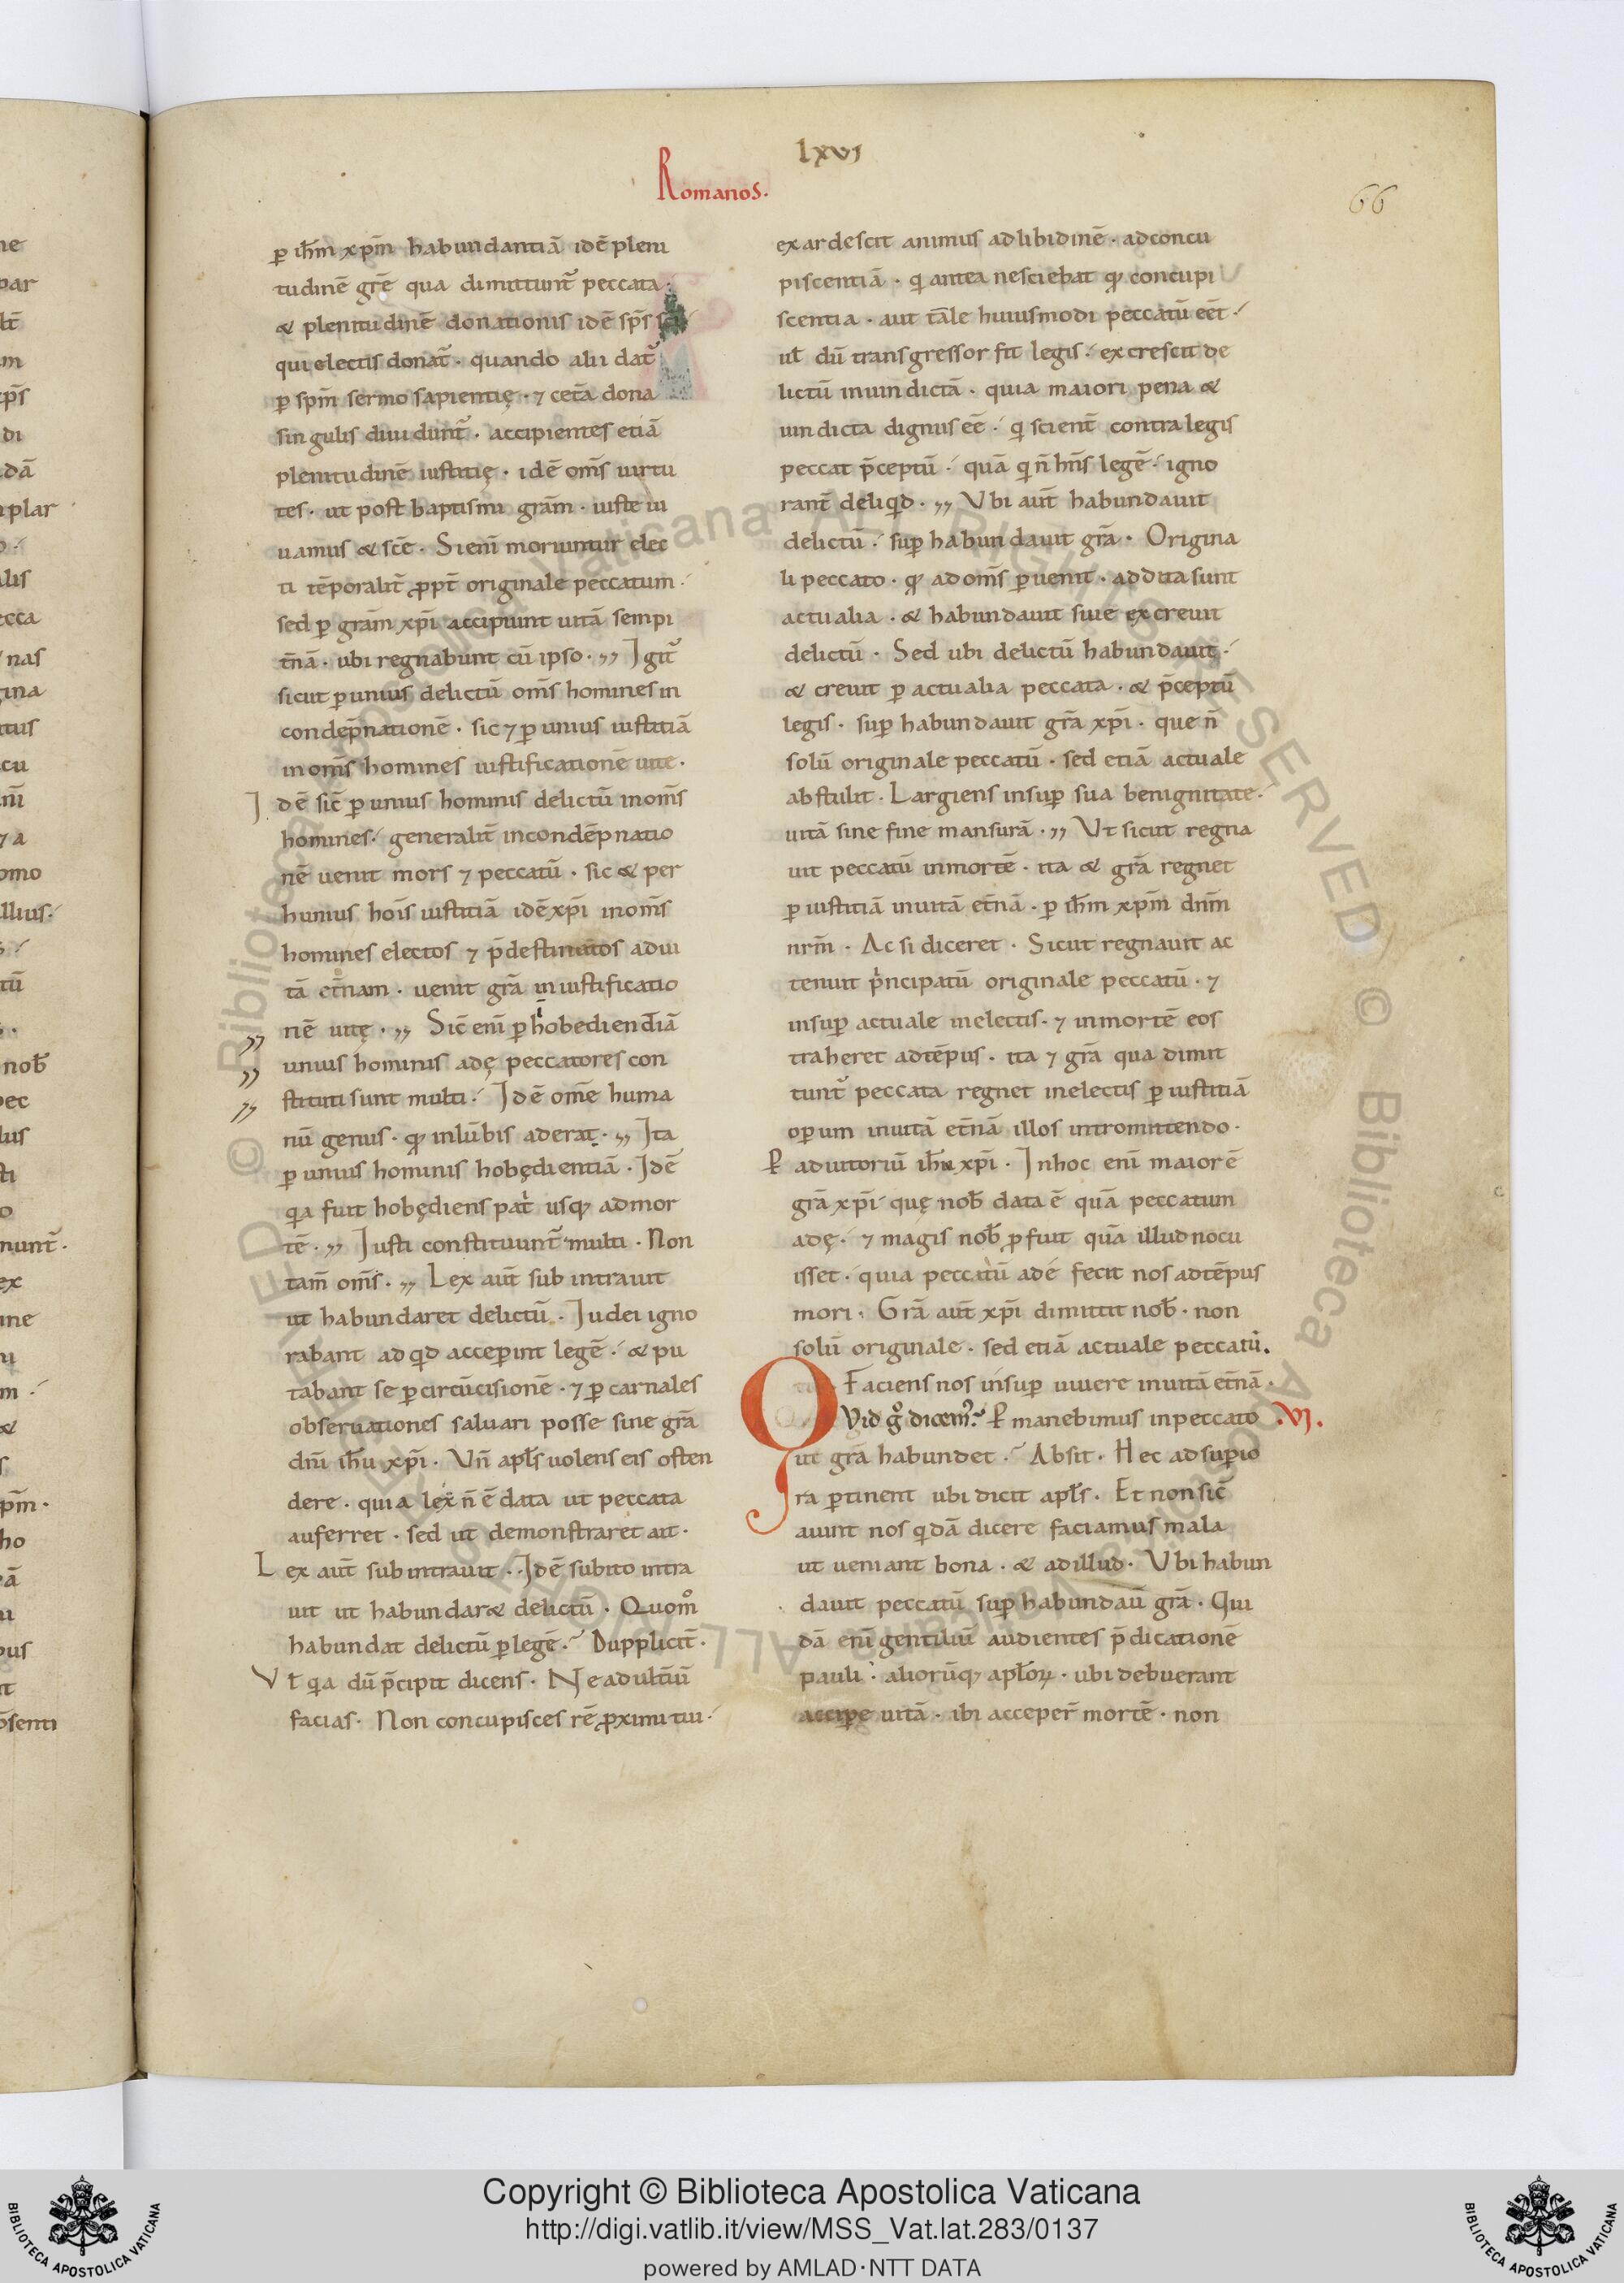 lxvi
Romanos.
66
ꝑ ihm̄ xpm̄ habundantiā idē pleni
tudinē grē qua dimittunt᷑ peccata.
& plenitudinē donationis idē sps̄ sci
qui electis donat᷑. quando alii dat᷑
ꝑ spm̄ sermo sapientię. ⁊ cet̄a dona
singulis diuidunt᷑. accipientes etiā
plenitudinē iustitię. idē oms̄ uirtu
tes. ut post baptismi grām. iuste ui
uamus & scē. Si enī moriuntur elec
ti tēporalit̄ ꝓpt̄ originale peccatum.
sed ꝑ grām xpī accipiunt uitā sempi
t̄nā. ubi regnabunt cū ipso. ,, Igit᷑
sicut ꝑ unius delictū oms̄ homines in
condep̄nationē. sic ⁊ ꝑ unius iustitiā
in oms̄ homines iustificationē uite.
Idē sic̄ ꝑ unius hominis delictū in oms̄
homines. generalit̄ in condēpnatio
nē uenit mors ⁊ peccatū. sic & per
hunius hois̄ iustitiā idē xpī in oms̄
homines electos ⁊ p̄destinatos ad ui
tā et̄nam. uenit grā in iustificatio
,, nē uitę. ,, Sic̄ enī ꝑ hobediendiā
,, unius hominis adę peccatores con
,, stituti sunt multi. Idē ome᷑ huma
nū genus. qđ in lūbis ade rat. ,, Ita
ꝑ unius hominis hobędientiā. Idē
qia fuit hobędiens pat̍ usq; ad mor
tē. ,, Iusti constituunt᷑ multi. Non
tam̄ oms̄. ,, Lex aut̄ sub intrauit
ut habundaret delictū. Iudei igno
rabant ad qd acceperint legē. & pu
tabant se ꝑ circūcisionē. ⁊ ꝑ carnales
obseruationes saluari posse sine grā
dnī ihū xpī. Vn̄ apłs uolens eis osten
dere. quia lex n̄ ē data ut peccata
auferret. sed ut demonstraret ait.
Lex aut̄ sub intrauit. Idē subito intra
uit ut habundar& delictū. Quom̊
habundat delictū ꝑ legē. Dupplicit̄.
Vł qia dū p̄cipit dicens. Ne adult̄iū
facias. Non concupisces rē ꝓximi tui.
exardescit animus ad libidinē. ad concu
piscentiā. qi antea nesciebat qđ concupi
scentia. aut tāle huiusmodi peccatū eēt.
uł dū transgressor fit legis. excrescit de
lictū in uindictā. quia maiori pena &
uindicta dignus eē. qi scient̄ contra legis
peccat p̄ceptū. quā qi n̄ hn̄s legē. igno
rant̄ deliqd. ,, Vbi aut̄ habundauit
delictū. suꝑ habundauit grā. Origina
li peccato. qđ ad oms̄ ꝑuenit. addita sunt
actualia. & habundauit siue excreuit
delictū. Sed ubi delictū habundauit.
& creuit ꝑ actualia peccata. & p̄ceptū
legis. suꝑ habundauit grā xpī. que n̄
solū originale peccatū. sed etiā actuale
abstulit. Largiens insuꝑ sua benignitate.
uitā sine fine mansurā. ,, Vt sicut regna
uit peccatū in mortē. ita & grā regnet
ꝑ iustitiā in uitā et̄nā. ꝑ ihm̄ xpm̄ dnm̄
nrm̄. Ac si diceret. Sicut regnauit ac
tenuit p̍ncipatū originale peccatū. ⁊
insuꝑ actuale in electis. ⁊ in mortē eos
traheret ad tēpus. ita ⁊ grā qua dimit
tunt᷑ peccata regnet in electis ꝑ iustitiā
operum in uitā et̄nā illos intromittendo.
Ꝑ adiutoriū ihu xpī. In hoc enī maior ē
grā xpī quę nob̄ data ē quā peccatum
adę. ⁊ magis nob̄ ꝓfuit quā illud nocu
isset. quia peccatū adé fecit nos ad tēpus
mori. Grā aut̄ xpī dimittit nob̄. non
solū originale. sed etiā actuale peccatū.
Faciens nos insuꝑ uiuere in uitā et̄nā.
QVid g̊ dicem᷒? Ꝑmanebimus in peccato .VI.
ut grā habundet. Absit. Hec ad superio
ra ꝑtinent ubi dicit apłs. Et non sic̄
aiunt nos qidā dicere faciamus mala
ut ueniant bona. & ad illud. Vbi habun
dauit peccatū suꝑ habundaū grā. Qui
dā enī gentiliū audientes p̄dicationē
pauli. aliorūq; apłoꝝ. ubi debuerant
accipe uitā. ibi acceper̄ mortē. non
Copyright © Biblioteca Apostolica Vaticana
http://digi.vatlib.it/view/MSS_Vat.lat.283/0137
powered by AMLAD·NTT DATA